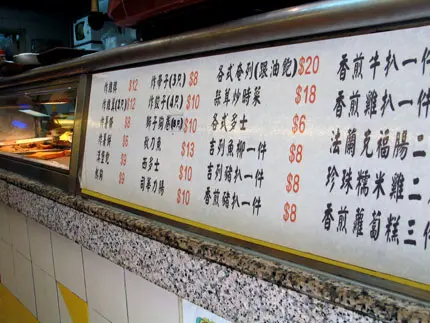 $12
$12
$8
$6
$9
$9
炸帶子(3只) $8
炸餃子(4只) $10
$10
秋刀魚 $13
西多士 $8
$10
各式卷列(跟油飽) $20
蒜茸炒時菜 $18
各式多士 $6
吉列魚柳一件 $8
吉列豬扒一件 $8
香煎豬扒一件 $8
香煎牛扒一件
香煎雞扒一件
法蘭克福腸二
珍珠糯米雞二
香煎蘿蔔糕三件